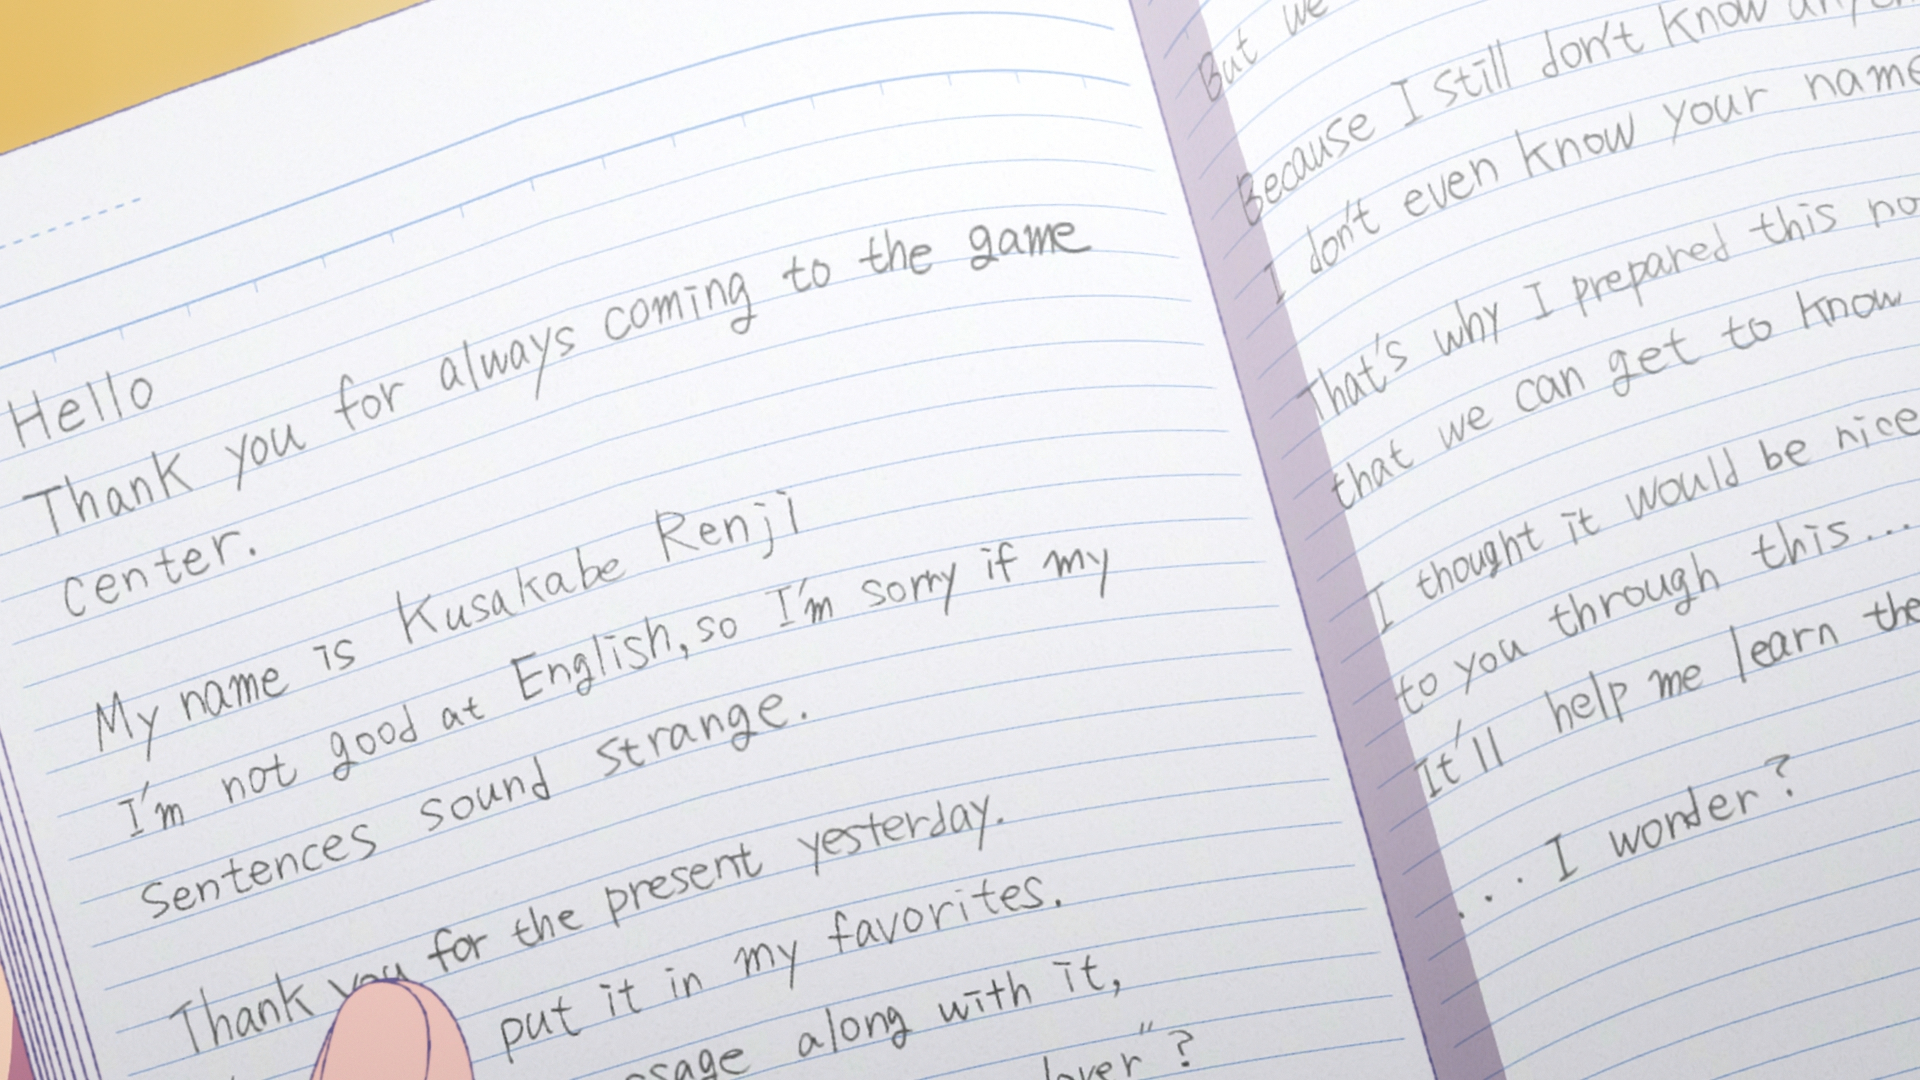 Hello
Thank you for always coming to the game
center.
My name is Kusakabe Renji
I'm not good at English, so I'm sorry if my
sentences sound strange.
Thank you for the present yesterday.
put it in my favorites.
along with it,
lover"?
But we
Because I still don't know
I don't even know your name
That's why I prepared this
that we can get to know
I thought it would be nice
to you through this...
It'll help me learn the
...I wonder?